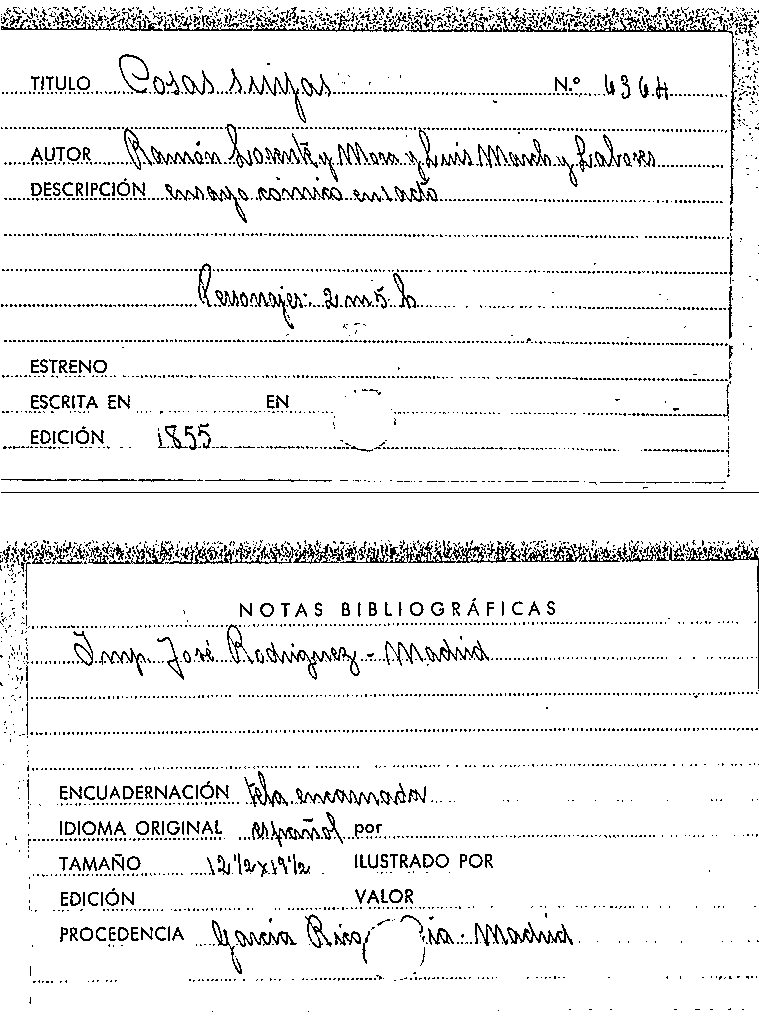 TITULO Cosas suyas N.º 6364
AUTOR Ramón Lorente y Mora y Luis Mardo y Labores
DESCRIPCIÓN ensayo cómico en 1 acto
Personajes: 2 m 5 h
ESTRENO
ESCRITA EN EN
EDICIÓN 1855
NOTAS BIBLIOGRÁFICAS
Imp. José Rodriguez - Madrid
ENCUADERNACIÓN tela encarnada
IDIOMA ORIGINAL español por
TAMAÑO 12 1/2 x 19 1/2 ILUSTRADO POR
EDICIÓN VALOR
PROCEDENCIA García Rico ía - Madrid